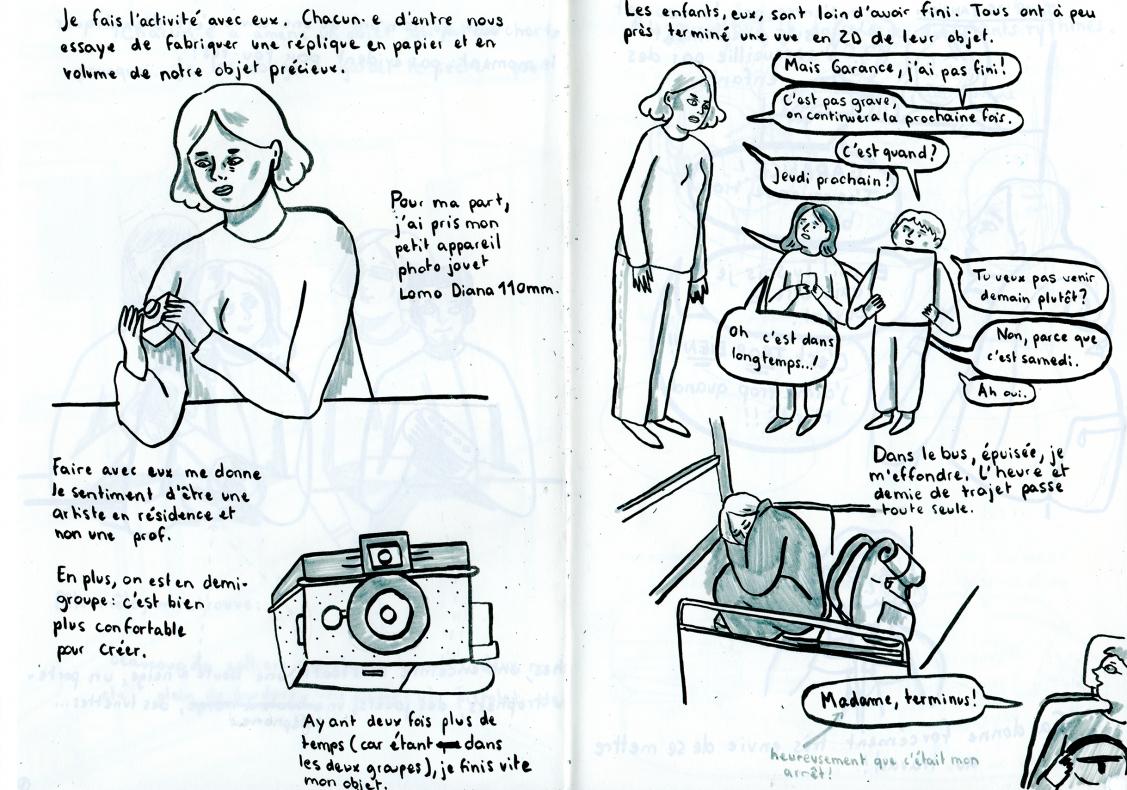 Je fais l'activité avec eux. Chacun·e d'entre nous
essaye de fabriquer une réplique en papier et en
volume de notre objet précieux.
Pour ma part,
j'ai pris mon
petit appareil
photo jouet
Lomo Diana 110mm.
Faire avec eux me donne
le sentiment d'être une
artiste en résidence et
non une prof.
En plus, on est en demi-
groupe : c'est bien
plus confortable
pour créer.
Ayant deux fois plus de
temps (car étant dans
les deux groupes), je finis vite
mon objet.
Les enfants, eux, sont loin d'avoir fini. Tous ont à peu
près terminé une vue en 2D de leur objet.
Mais Garance, j'ai pas fini!
C'est pas grave,
on continuera la prochaine fois.
C'est quand?
Jeudi prochain!
Tu veux pas venir
demain plutôt?
Oh c'est dans
longtemps...!
Non, parce que
c'est samedi.
Ah oui.
Dans le bus, épuisée, je
m'effondre. L'heure et
demie de trajet passe
toute seule.
Madame, terminus!
heureusement que c'était mon
arrêt!